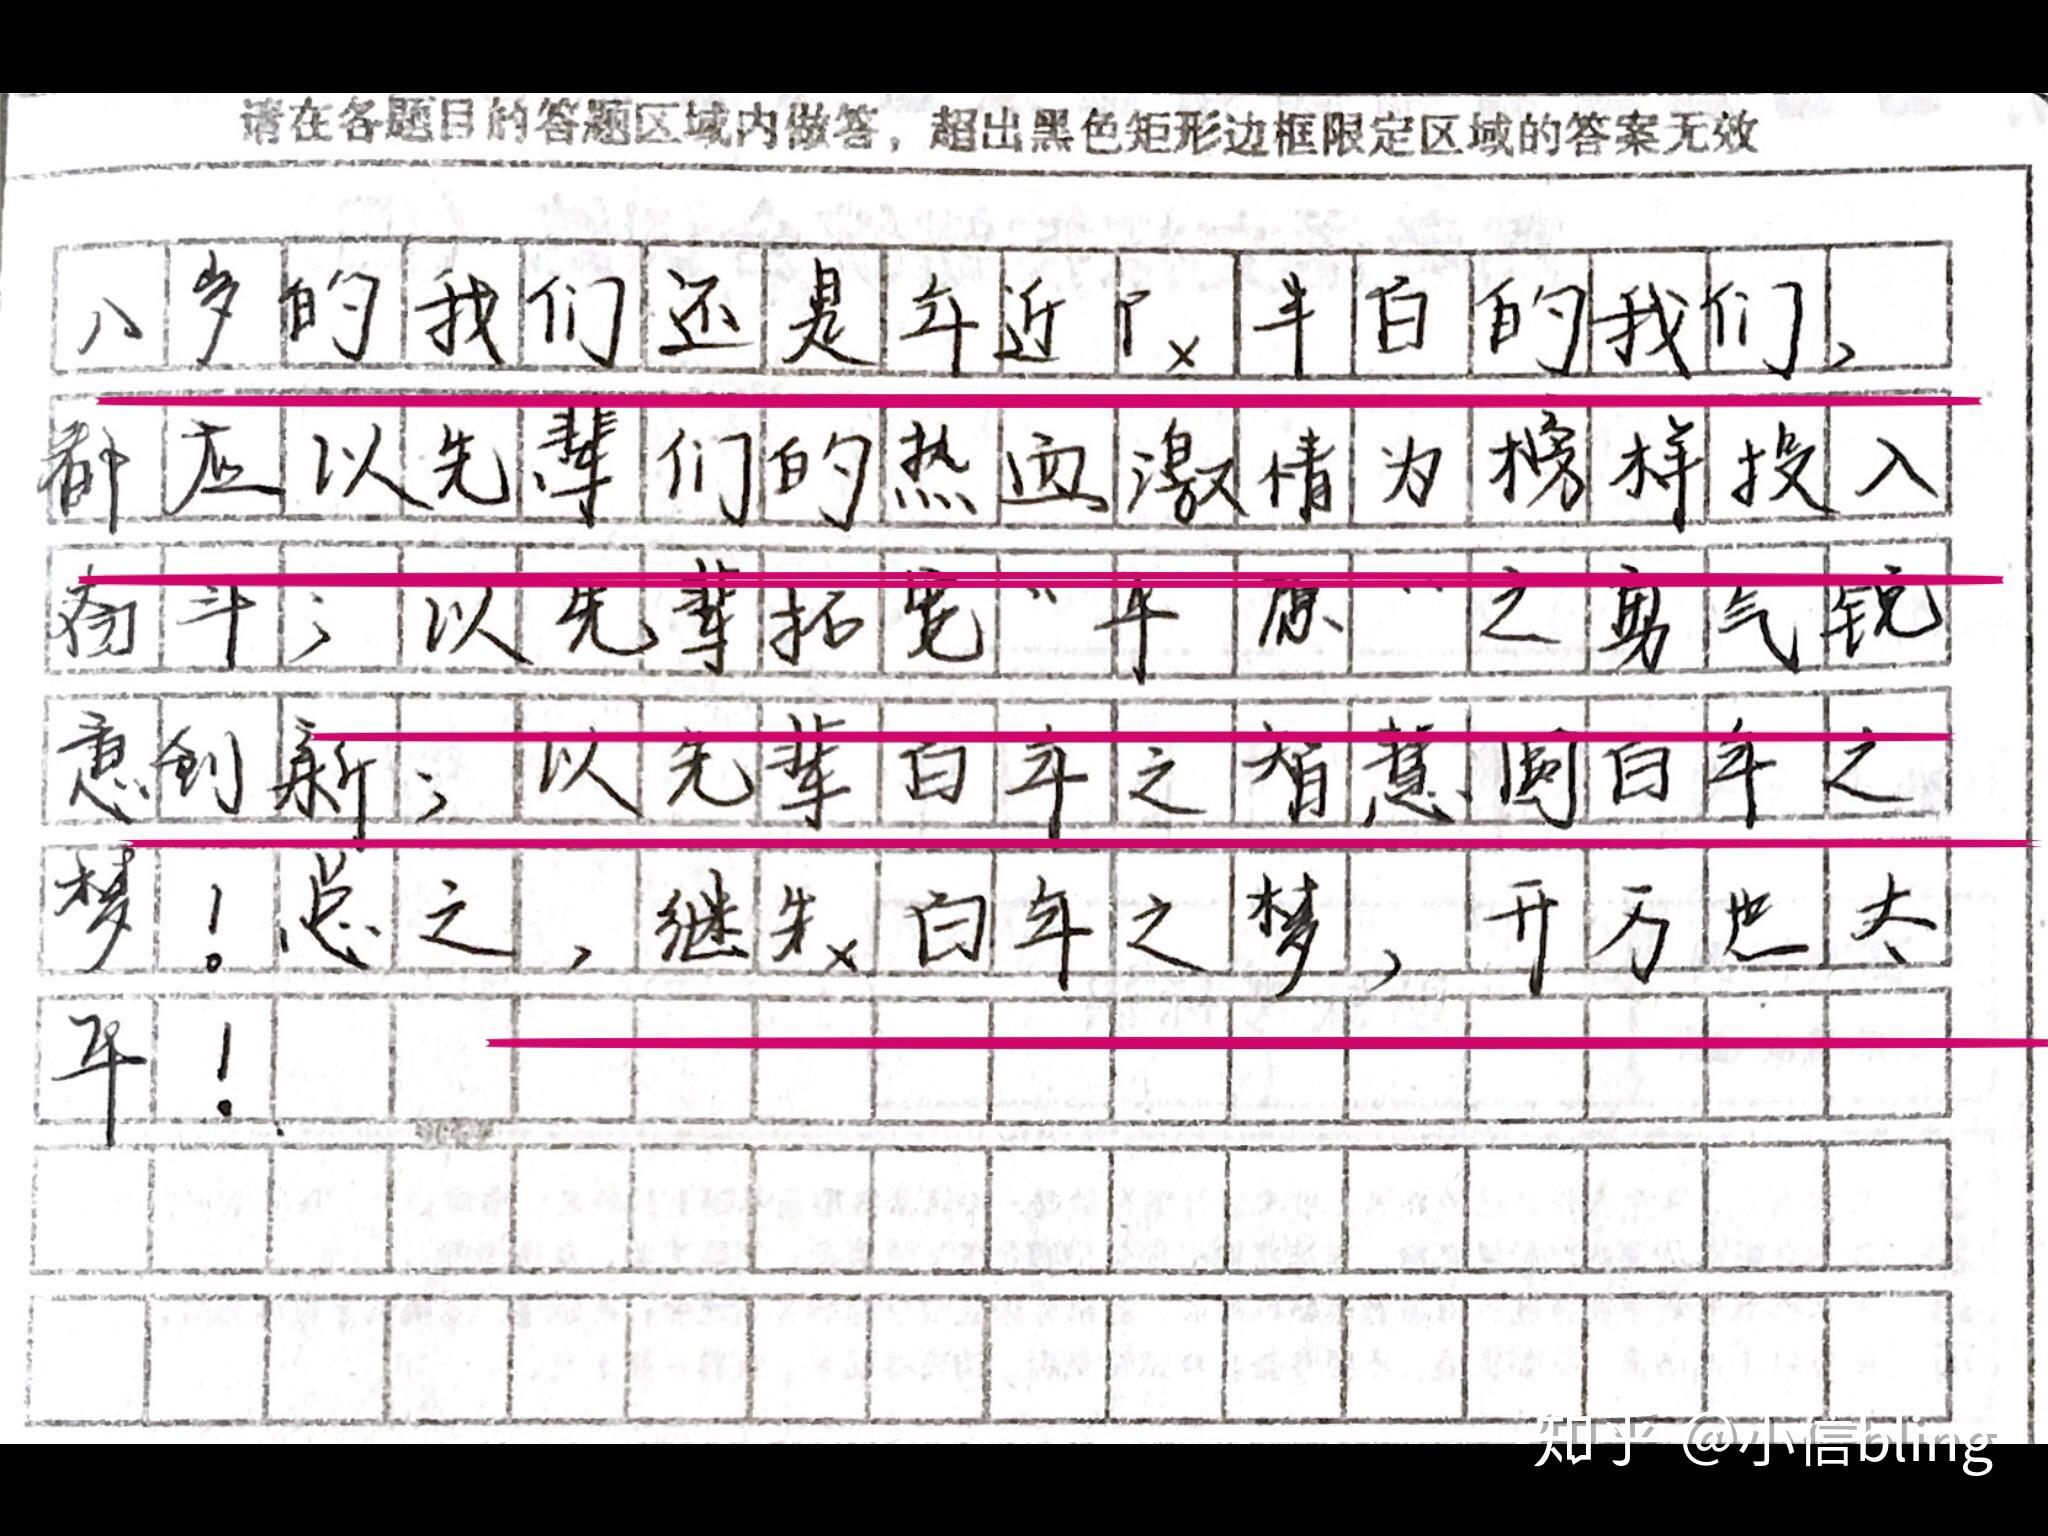 请在各题目的答题区域内做答，超出黑色矩形边框限定区域的答案无效
八岁的我们还是年近半白的我们，
都应以先辈们的热血激情为榜样投入
奋斗；以先辈拓宽“平原”之勇气锐
意创新；以先辈百年之智慧圆百年之
梦！总之，继先百年之梦，开万世太
平！
知乎 @小信bling